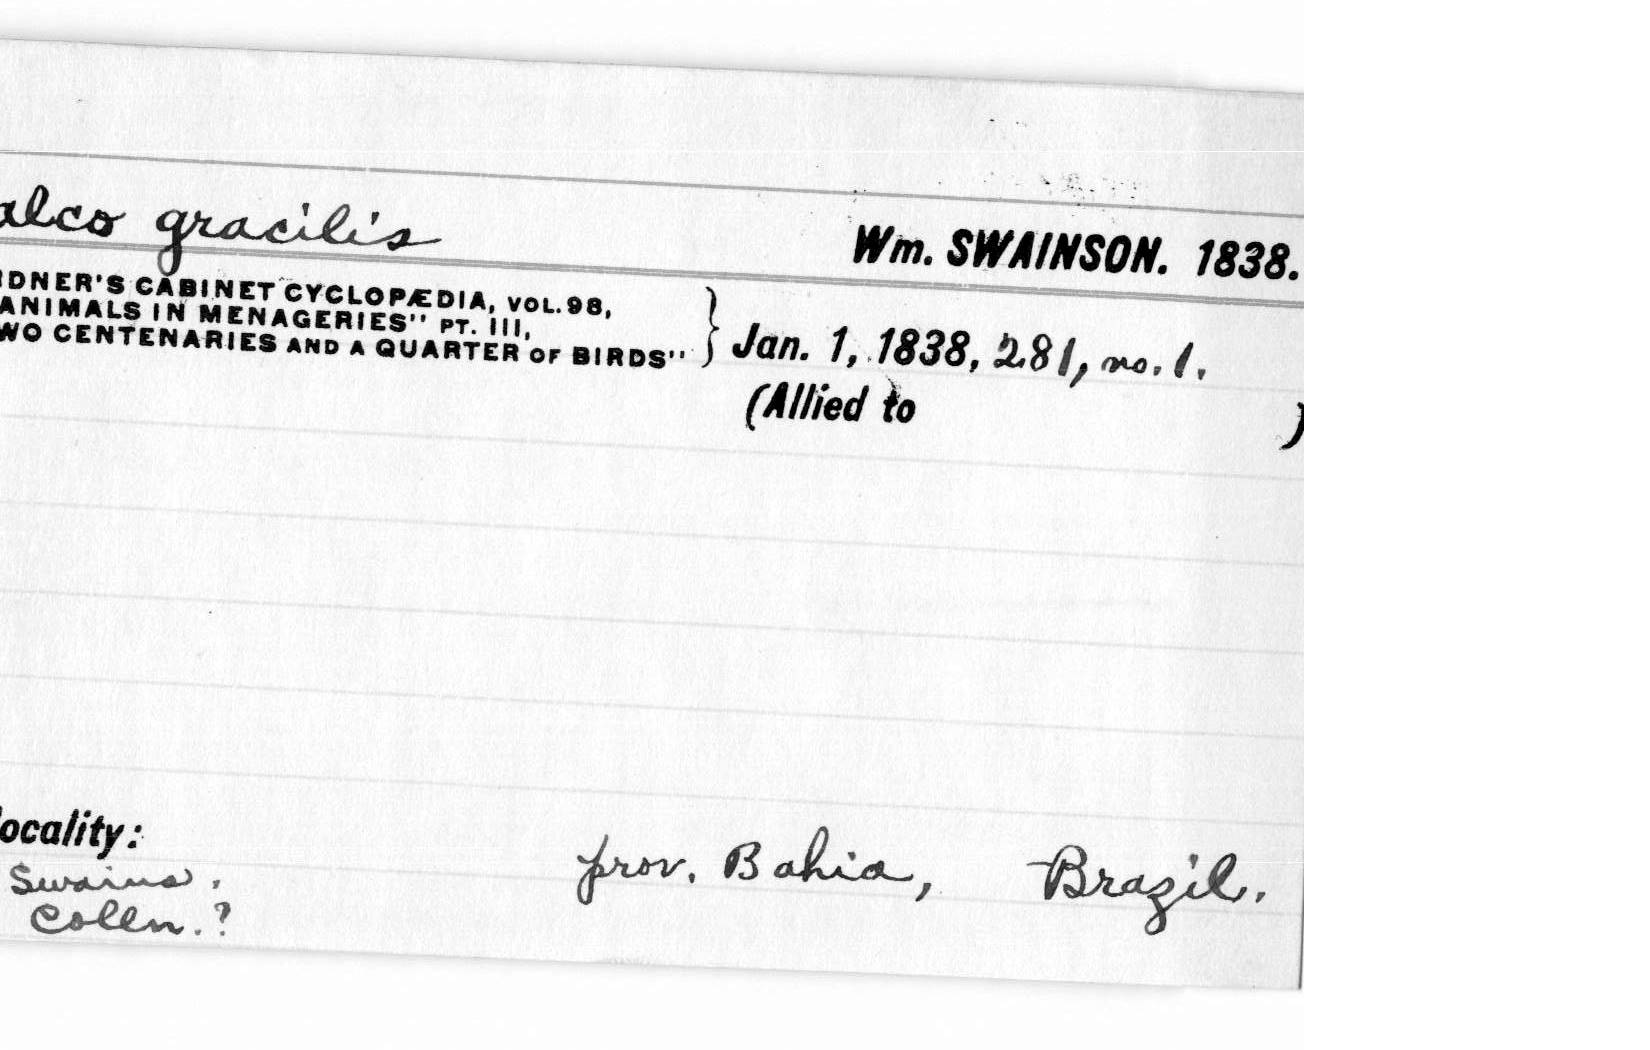 alco gracilis
Wm. SWAINSON. 1838.
RDNER'S CABINET CYCLOPÆDIA, VOL. 98,
ANIMALS IN MENAGERIES" PT. III,
WO CENTENARIES AND A QUARTER OF BIRDS"
} Jan. 1, 1838, 281, no. 1.
(Allied to )
ocality:
prov. Bahia, Brazil.
Swains.
Colln.?